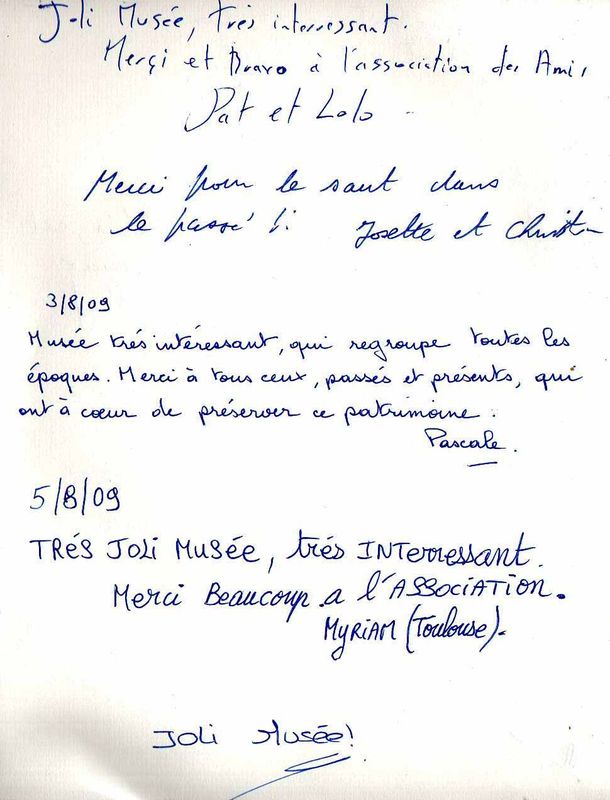 Joli Musée, très interressant.
Merçi et Bravo à l'association des Amis
Pat et Lolo
Merci pour le saut dans
le passé !
Josette et Christian
3/8/09
Musée trés intéressant, qui regroupe toutes les
époques. Merci à tous ceux, passés et présents, qui
ont à cœur de préserver ce patrimoine.
Pascale.
5/8/09
TRÉS JOLI MUSÉE, trés INTERressant.
Merci Beaucoup a l'ASSOCIATION.
MYRIAM (Toulouse).
JOLI MUSÉE!